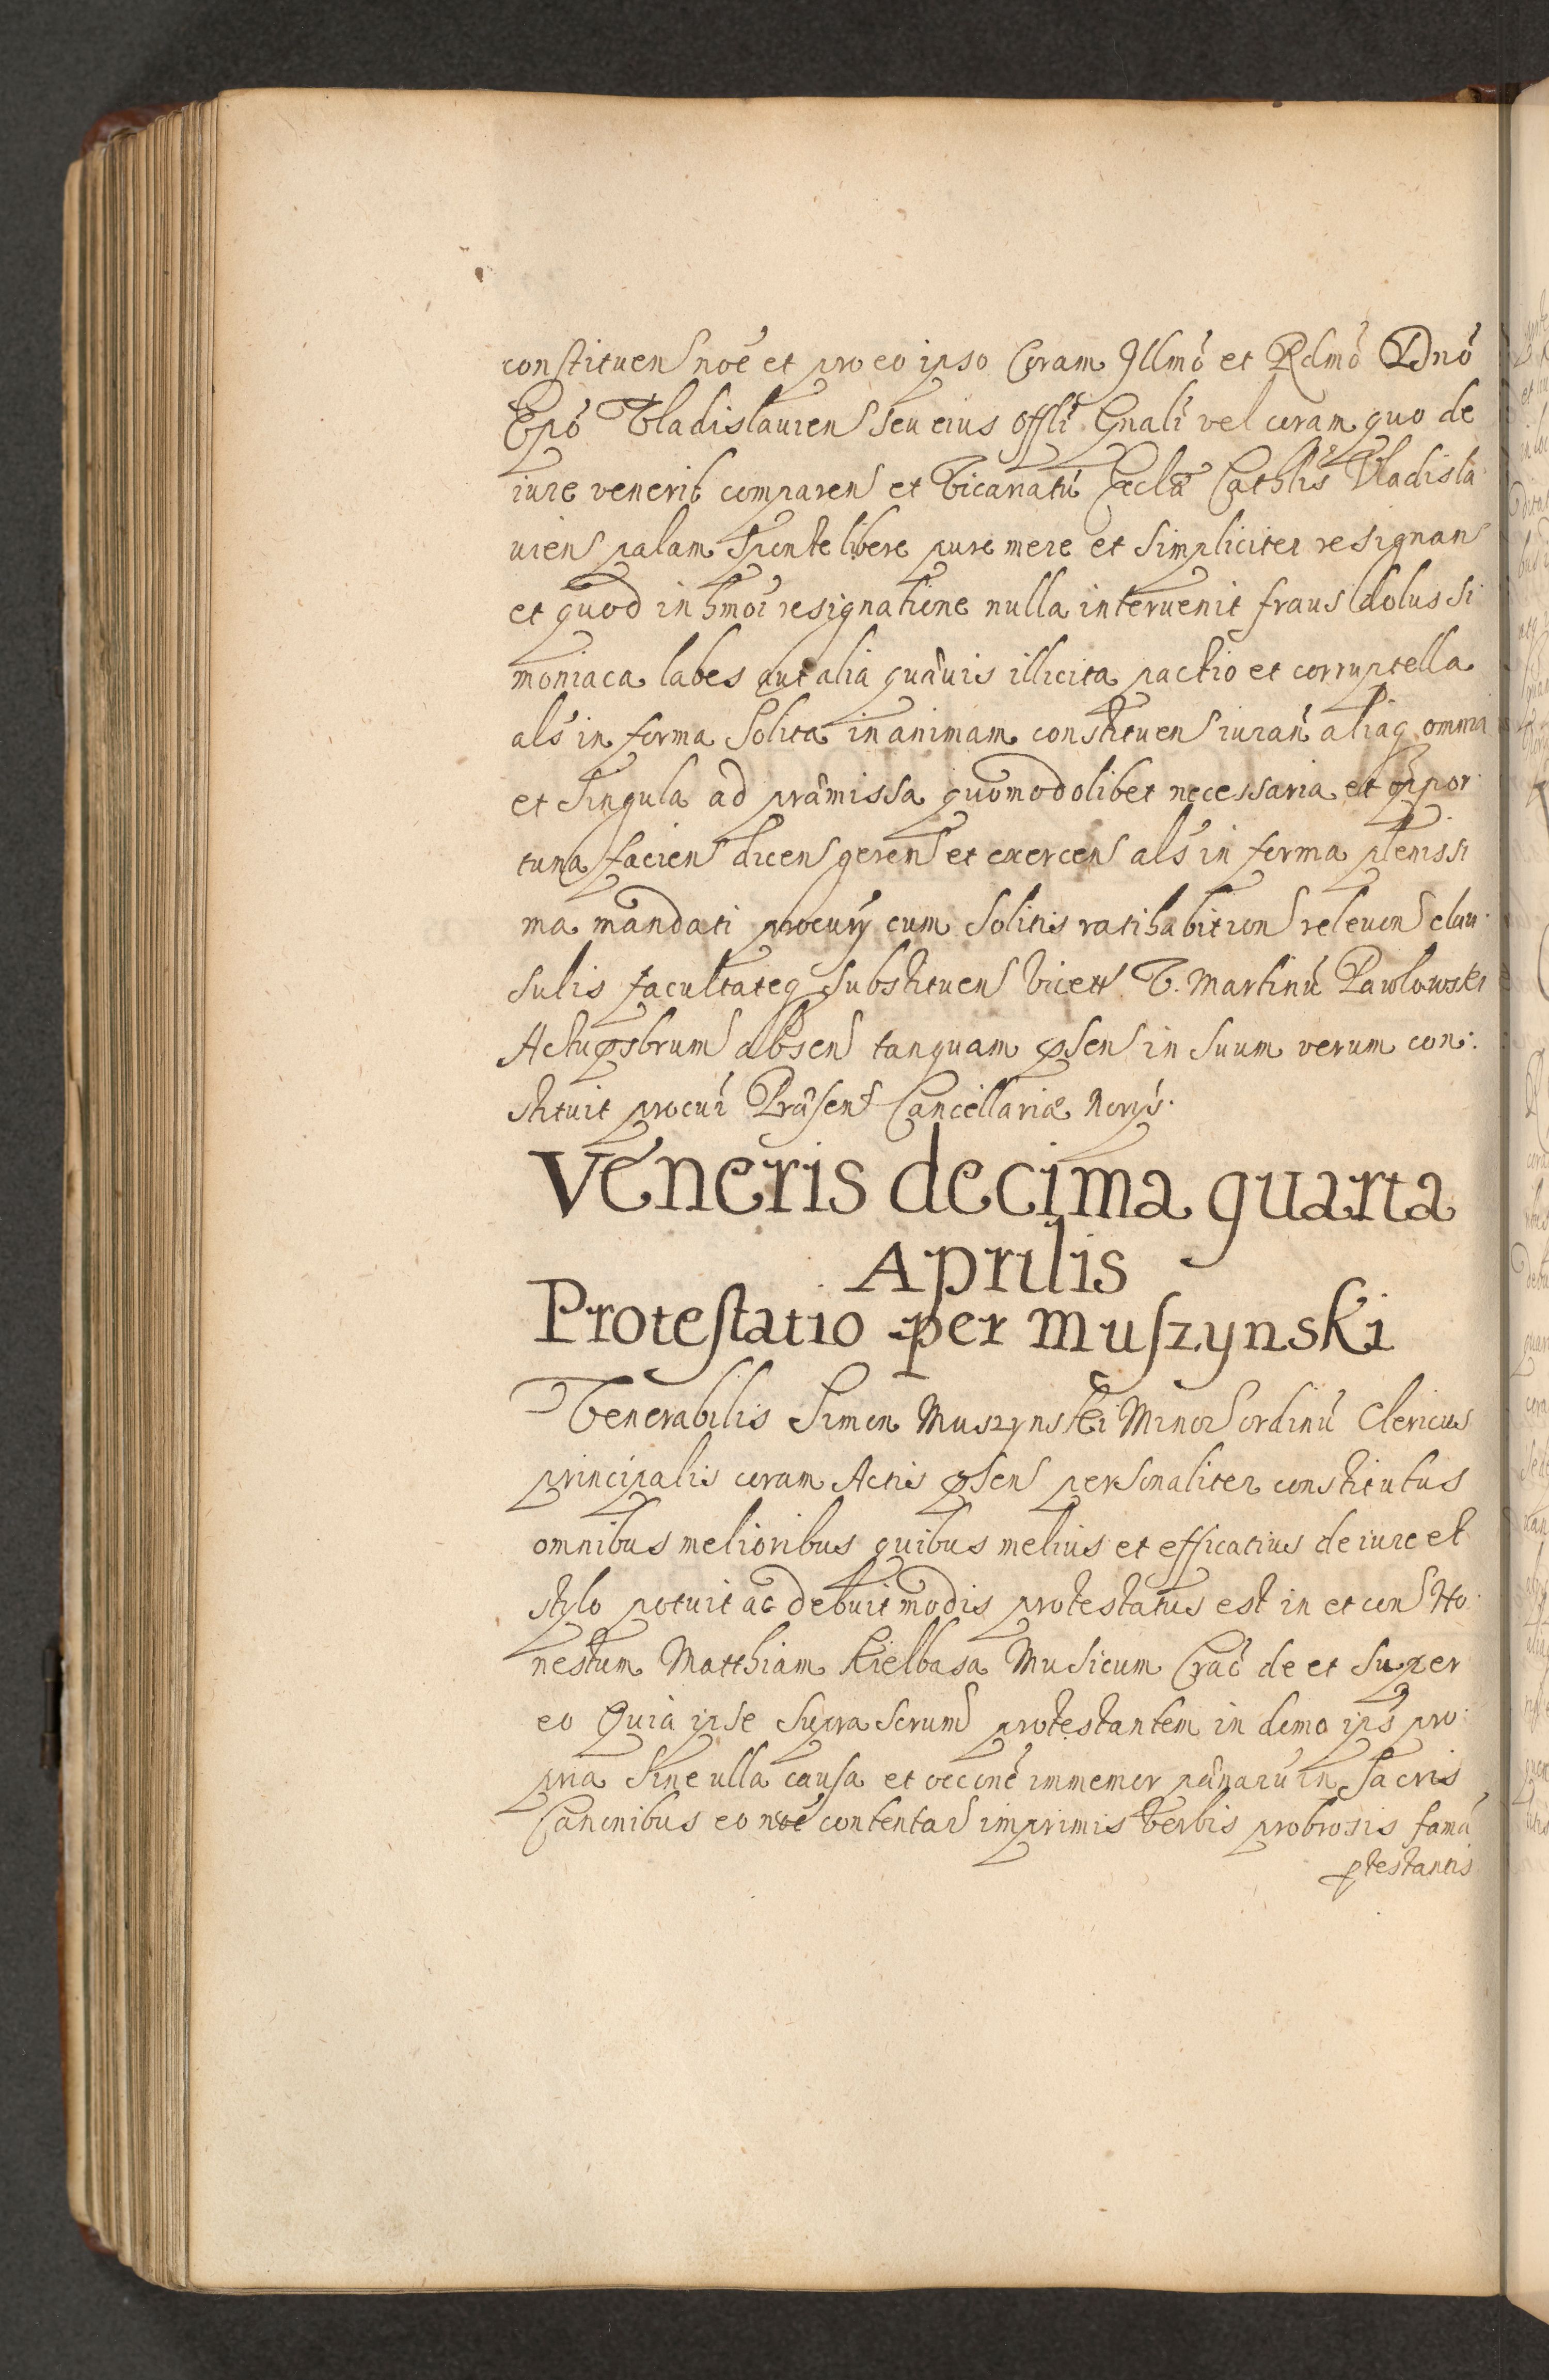 constituen noé et pro eo ipso Coram Jllmó et Rdmó Dnó
Epó Vladislauien seu eius Offli Gnali vel coram quo de
iure venerit comparen et Vicariatú Eccla Cathlis Vladisla
uien palam sponte libere pure mere et simpliciter resignan
et quod in hmói resignatione nulla interuenit fraus dolus si
moniaca labes aut alia quâuis illicita pactio et corruptella
als in forma solita in animam constituen iurań aliaq omnia
et singula ad prâmissa quomodolibet necessaria et oppor
tuna facien dicen geren et exercen als in forma plenissi
ma mandati procurÿ cum solitis ratihabition releuon clau
sulis facultateq substituen Martinú Pawlowski
absen tanquam pśen in suum verum con:
stituit procur Prâsent Cancellariæ Norÿs.
Veneris decima quarta
Aprilis
Protestatio per Muszynski
Venerabilis Simon Muszynski Minor ordinú Clericus
principalis coram Actis pśen personaliter constitutus
omnibus melioribus quibus melius et efficatius de iure et
stylo potuit ac debuit modis protestatus est in et con Ho
nestum Matthiam Kielbasa Musicum Crac de et super
eo Quia ipse supra scrum protestantem in domo ips pro
pria sine ulla causa et occoné immemor pânarú in sacris
Canonibus eo noé contentar imprimis verbis probrosis famá
ptestantis